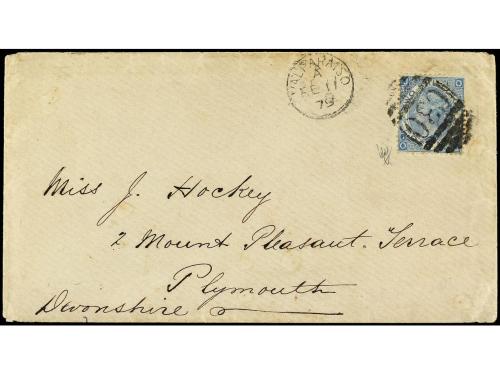 VALPARAISO
A
11
79
C30
Miss J. Hockey
2 Mount Pleasant. Terrace
Plymouth
Devonshire